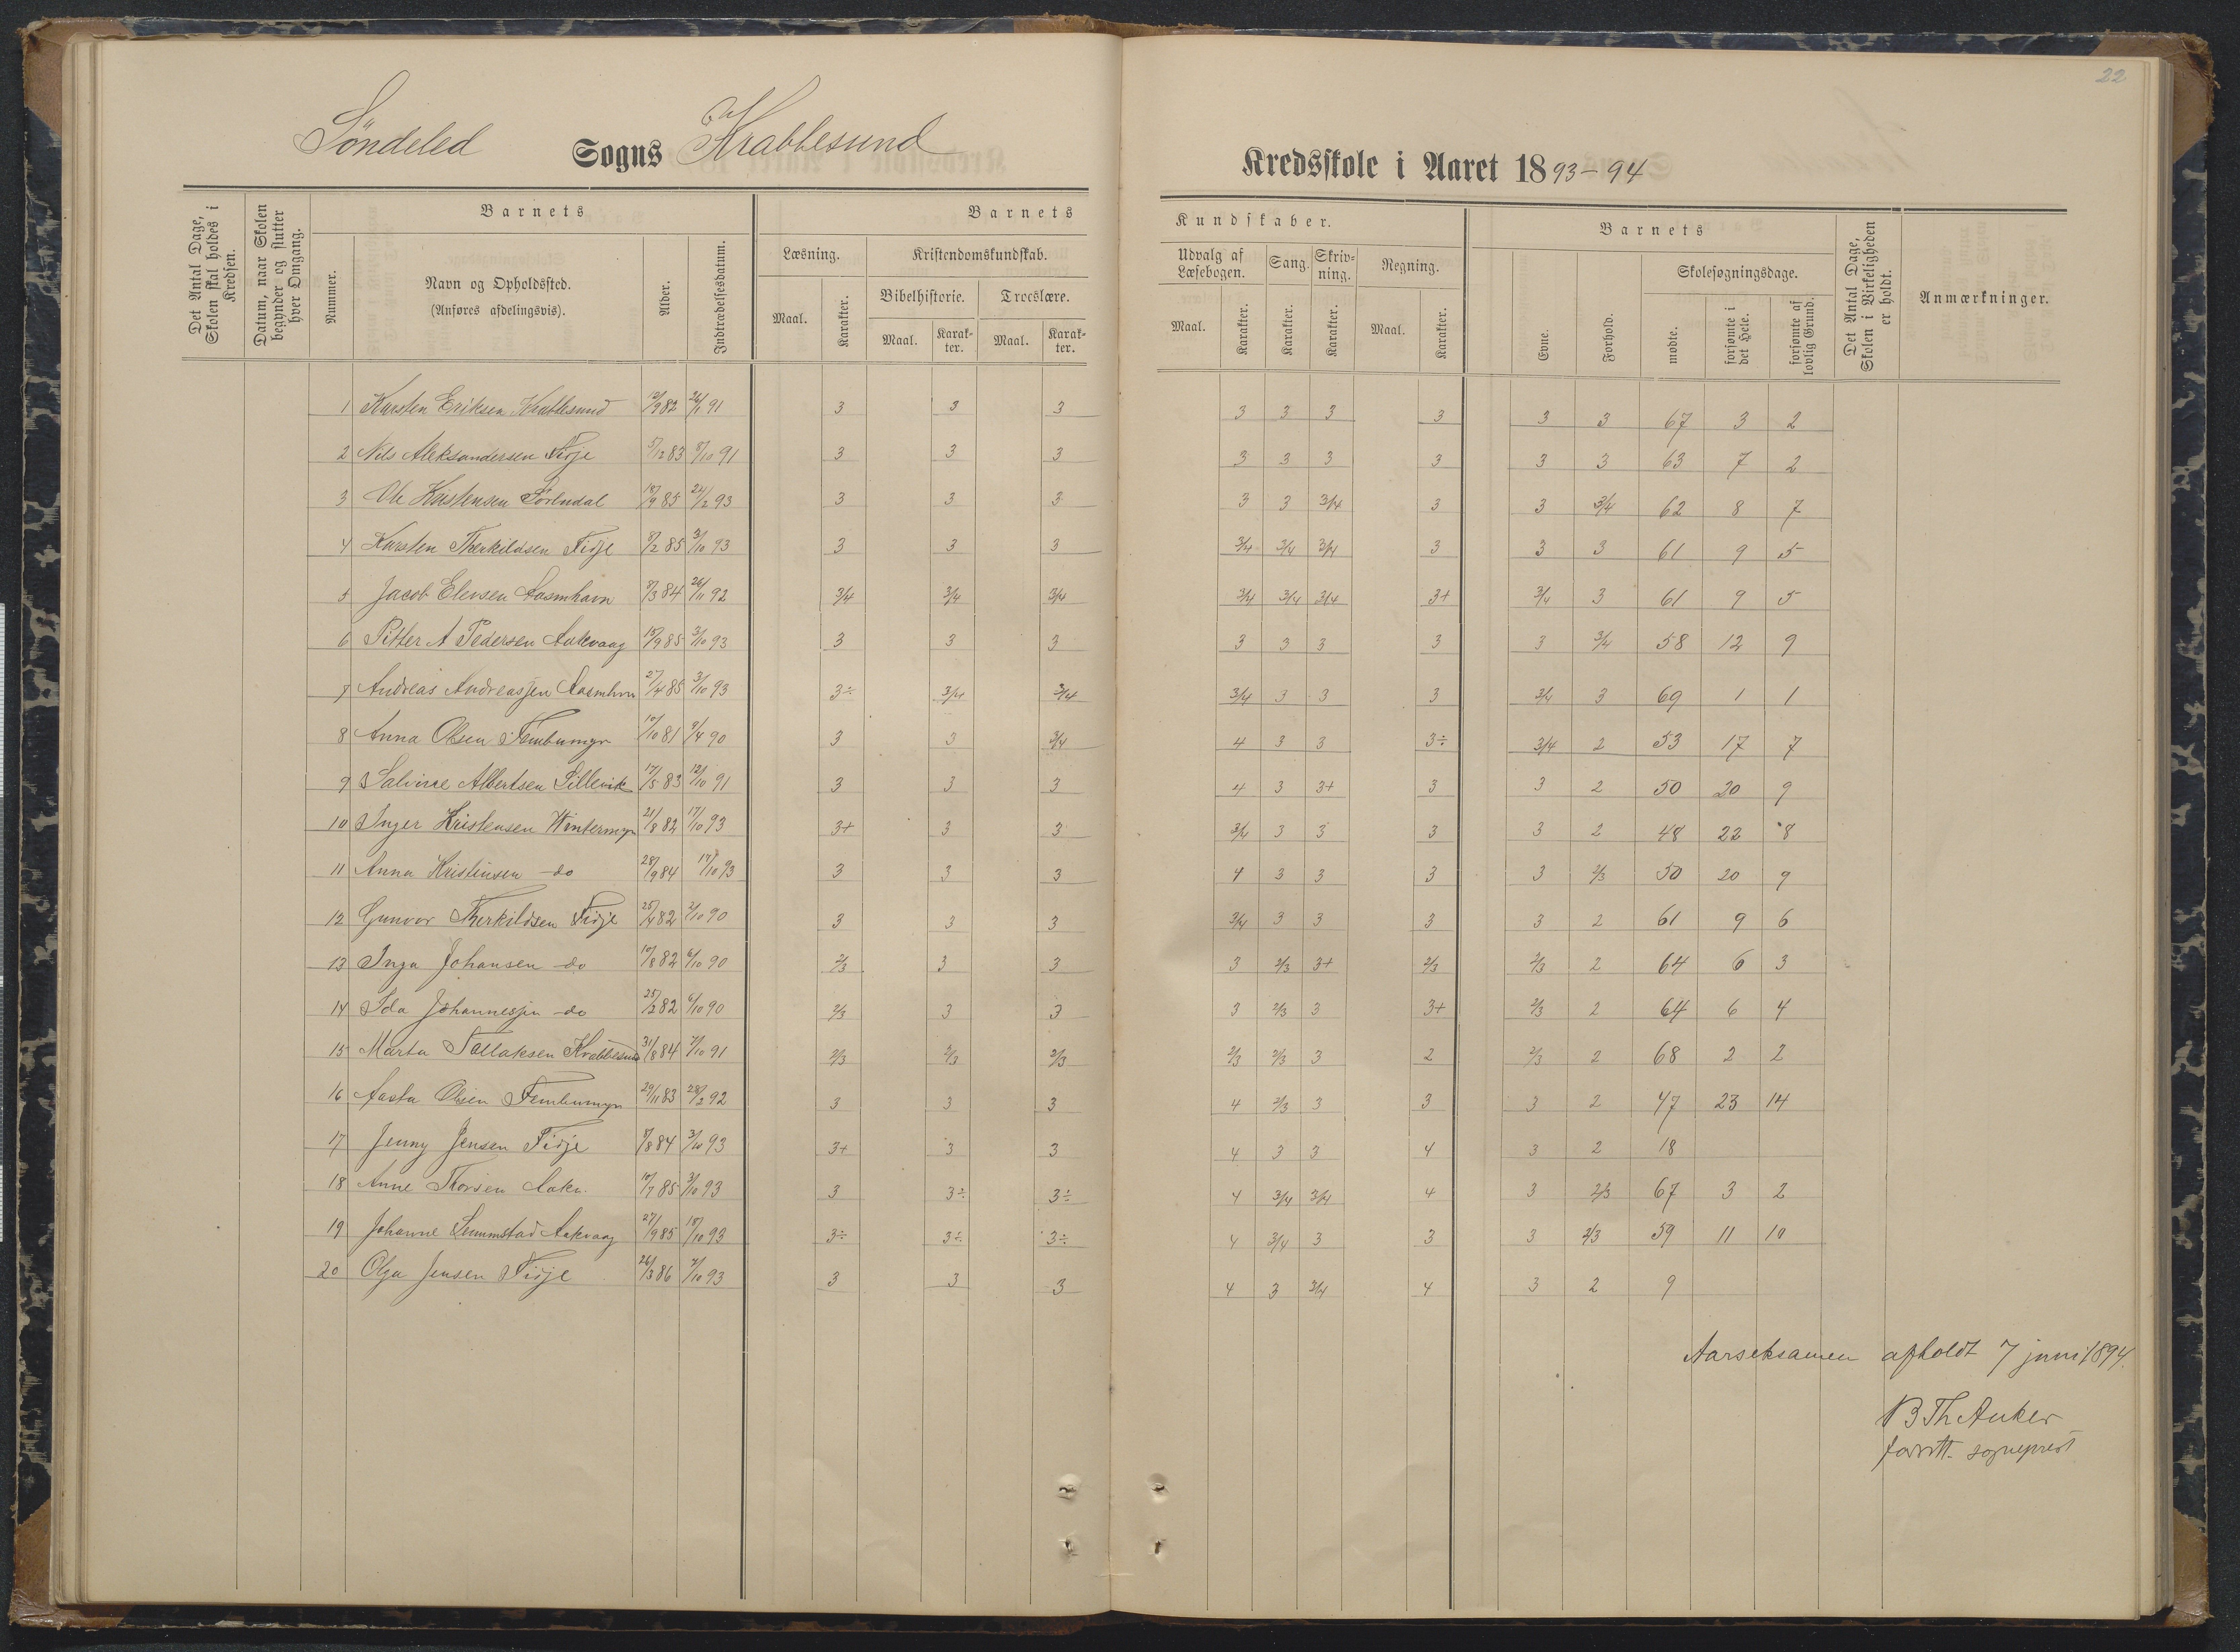 22
Söndeled Sogns Krabbesund Kredsskole i Aaret 1893-94
Det Antal Dage, Skolen skal holdes i Kredsen.
Datum, naar Skolen begynder og slutter hver Omgang.
Barnets
Nummer.
Navn og Opholdssted.
(Anføres afdelingsvis).
Alder.
Indtrædelsesdatum.
Barnets Kundskaber.
Læsning.
Maal. Karakter.
Kristendomskundskab.
Bibelhistorie. Troeslære.
Maal. Karakter. Maal. Karakter.
Udvalg af Læsebogen. Sang. Skrivning. Regning.
Maal. Karakter. Karakter. Karakter. Maal. Karakter.
Barnets
Evne. Forhold.
Skolesøgningsdage.
mødte. forsømte i det Hele. forsømte af lovlig Grund.
Det Antal Dage, Skolen i Virkeligheden er holdt.
Anmærkninger.
1 Karsten Eriksen Krabbesund 12/9 82 26/1 91 3 3 3 3 3 3 3 3 3 67 3 2
2 Nils Aleksandersen Fidje 5/12 83 8/10 91 3 3 3 3 3 3 3 3 3 63 7 2
3 Ole Kristensen 18/9 85 24/2 93 3 3 3 3 3 3/4 3 3 3/4 62 8 7
4 Karsten Therkildsen Fidje 8/2 85 3/10 93 3 3 3 3/4 3/4 3/4 3 3 3 61 9 5
5 Jacob Elevsen Aasmhavn 8/3 84 26/11 92 3/4 3/4 3/4 3/4 3/4 3/4 3+ 3/4 3 61 9 5
6 Pitter A Pedersen Aakvaag 15/9 85 3/10 93 3 3 3 3 3 3 3 3 3/4 58 12 9
7 Andreas Andreassen Aasmhvn 27/4 85 3/10 93 3÷ 3/4 3/4 3/4 3 3 3 3/4 3 69 1 1
8 Anna Olsen Fembumyr 10/10 81 9/4 90 3 3 3/4 4 3 3 3÷ 3/4 2 53 17 7
9 Saline Albertsen Lillevik 17/5 83 12/10 91 3 3 3 4 3 3+ 3 3 2 50 20 9
10 Inger Kristensen Wintermyr 21/8 82 17/10 93 3+ 3 3 3/4 3 3 3 3 2 48 22 8
11 Anna Kristensen do 28/9 84 17/10 93 3 3 3 4 3 3 3 3 2/3 50 20 9
12 Gunvor Therkildsen Fidje 25/4 82 2/10 90 3 3 3 3/4 3 3 3 3 2 61 9 6
13 Inga Johansen do 10/8 82 6/10 90 2/3 3 3 3 2/3 3+ 2/3 2/3 2 64 6 3
14 Ida Johannessen do 25/2 82 6/10 90 2/3 3 3 3 2/3 3 3+ 2/3 2 64 6 4
15 Marta Tallaksen Krabbesund 31/8 84 7/10 91 2/3 2/3 2/3 2/3 2/3 3 2 2/3 2 68 2 2
16 Aasta Olsen Fembumyr 29/11 83 28/2 92 3 3 3 4 2/3 3 3 3 2 47 23 14
17 Jenny Jensen Fidje 8/8 84 3/10 93 3+ 3 3 4 3 3 4 3 2 18
18 Anne Thorsen Aakv. 10/7 85 3/10 93 3 3÷ 3÷ 4 3/4 3/4 4 3 2/3 67 3 2
19 Johanne Aakvaag 27/9 85 18/10 93 3÷ 3÷ 3÷ 4 3/4 3 3 3 2/3 59 11 10
20 Olga Jensen Fidje 26/3 86 7/10 93 3 3 3 4 3 3/4 4 3 2 9
Aarseksamen afholdt 7 juni 1894.
B Th Anker
sogneprest